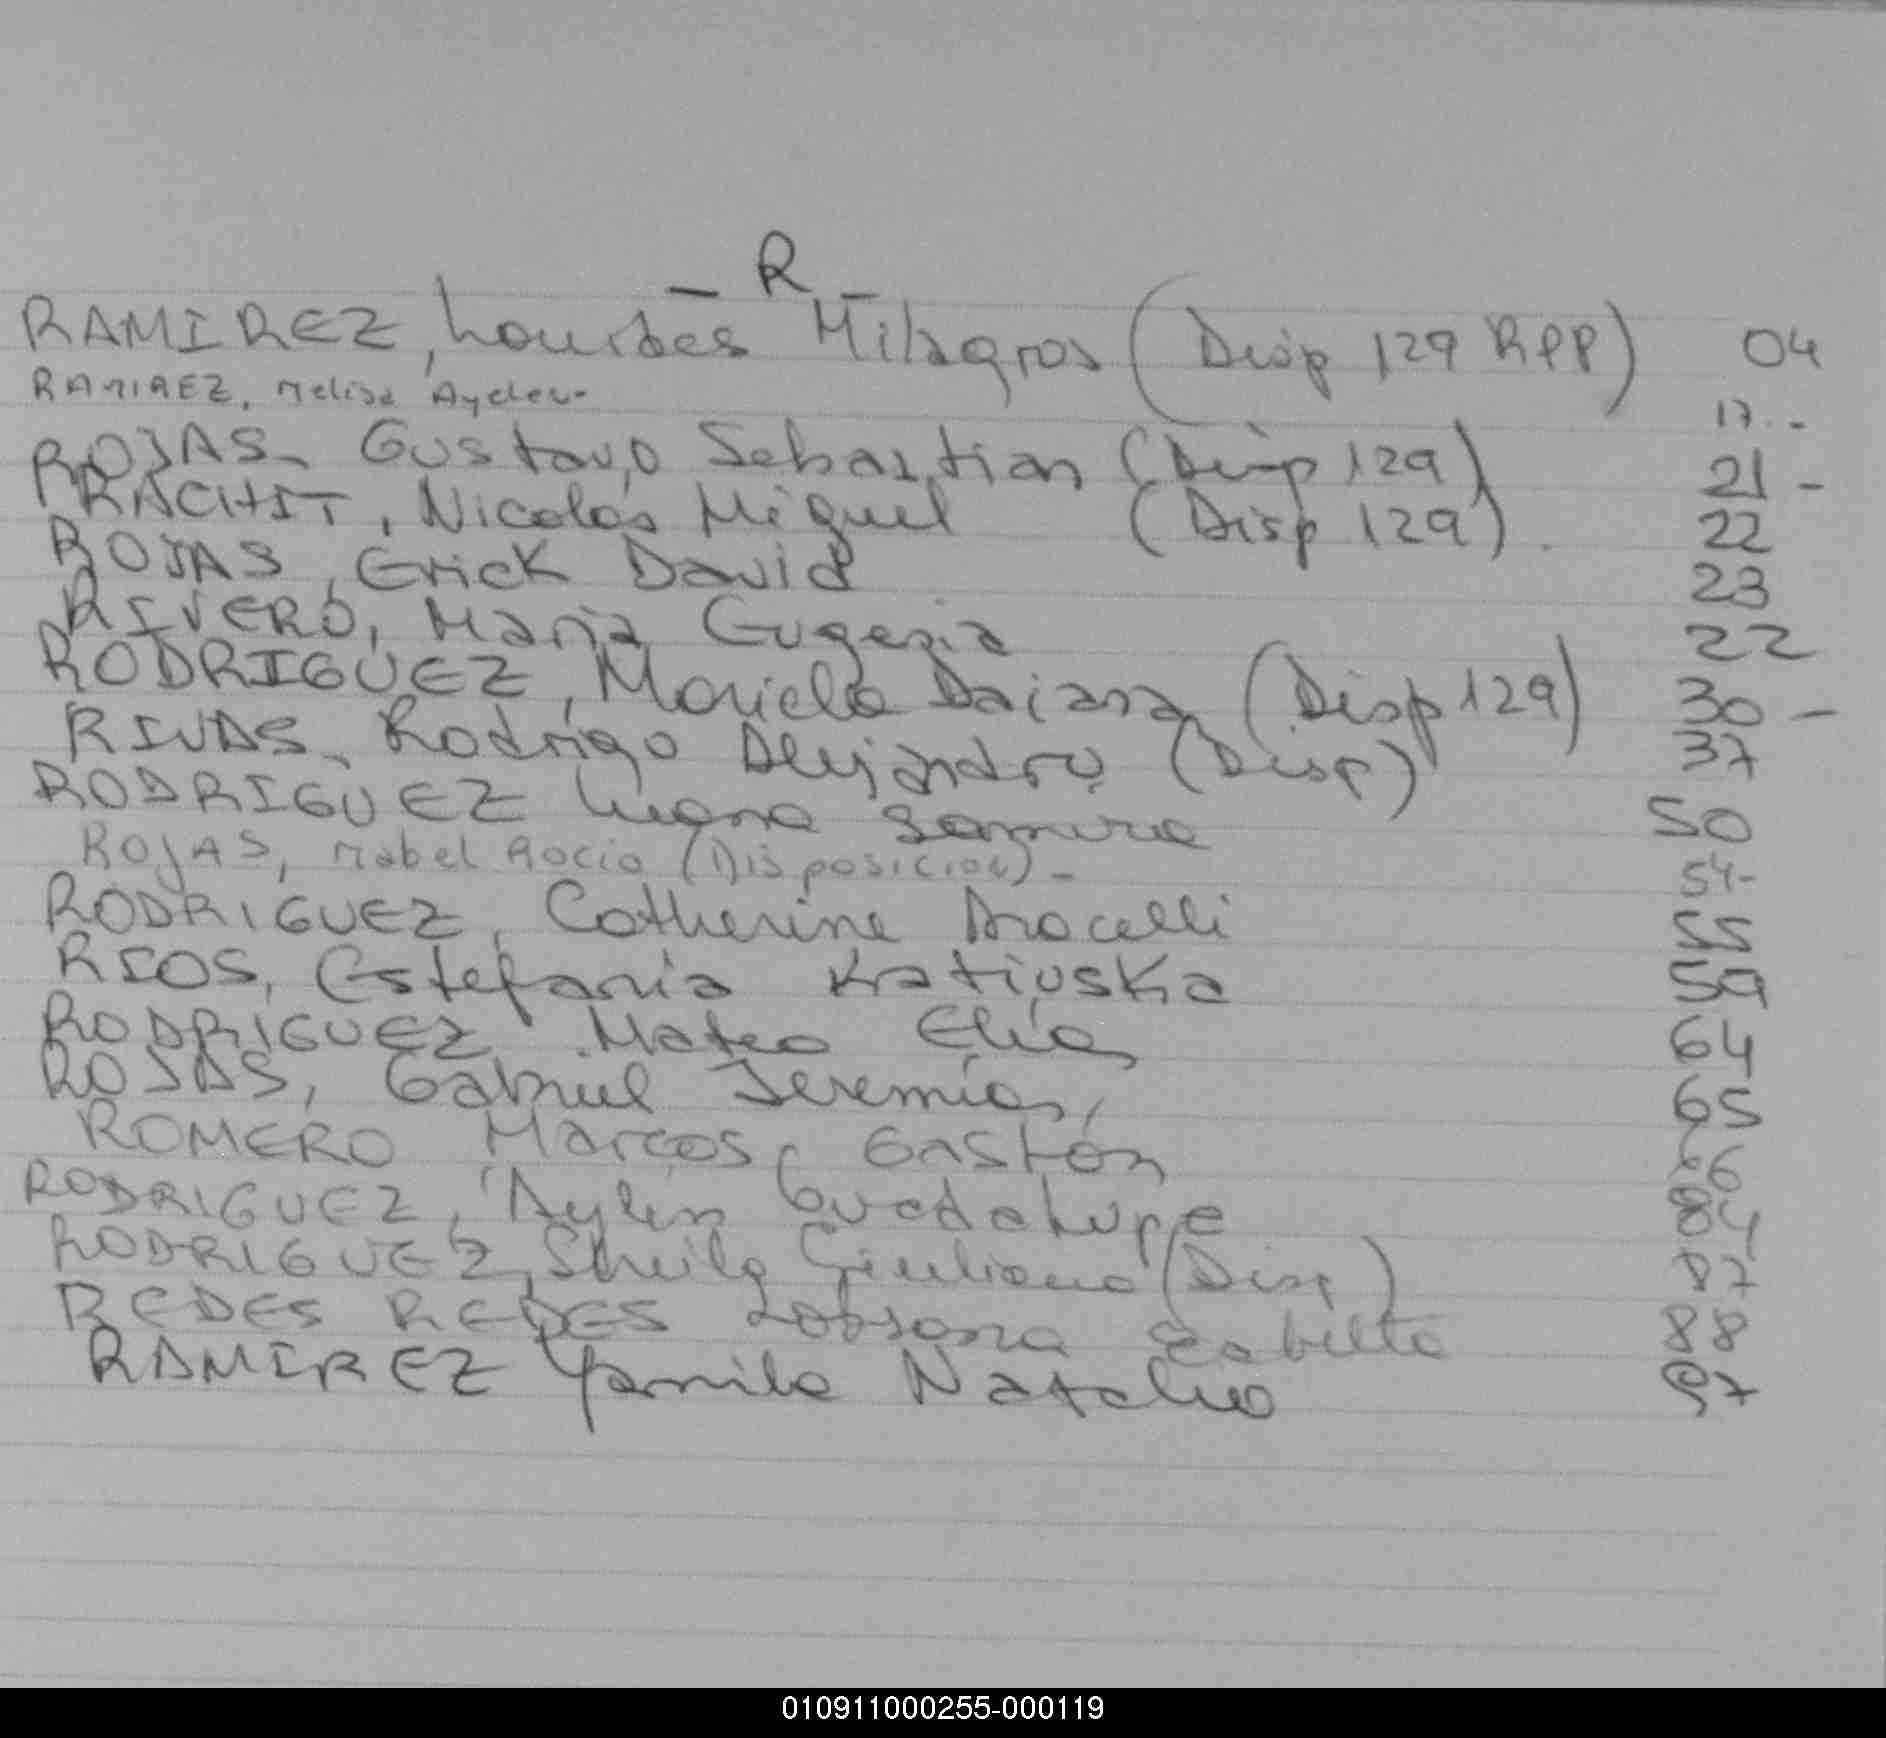 - R -
RAMIREZ, Lourdes Milagros (Disp 129 RPP) 04
RAMIREZ, Melisa Ayelen- 17.-
ROJAS, Gustavo Sebastian (Disp 129) 21-
RACHIT, Nicolás Miguel (Disp 129). 22
ROJAS, Erick David 23
RIVERO, Maria Eugenia 22
RODRIGUEZ, Mariela Daiana (Disp 129) 30-
RIVAS, Rodrigo Alejandro (Disp) 37
RODRIGUEZ Luana Samira 50
ROJAS, Mabel Rocio (Disposicion)- 54-
RODRIGUEZ, Catherine Aracelli 55
RIOS, Estefania Katiuska 59
RODRIGUEZ, Mateo Elías 64
ROJAS, Gabriel Jeremías, 65
ROMERO Marcos, Gastón 66
RODRIGUEZ, Aylén Guadalupe 84
RODRIGUEZ, Sheila Giuliana (Disp) 87
REDES REDES 88
RAMIREZ Yamila Natalia 97
010911000255-000119